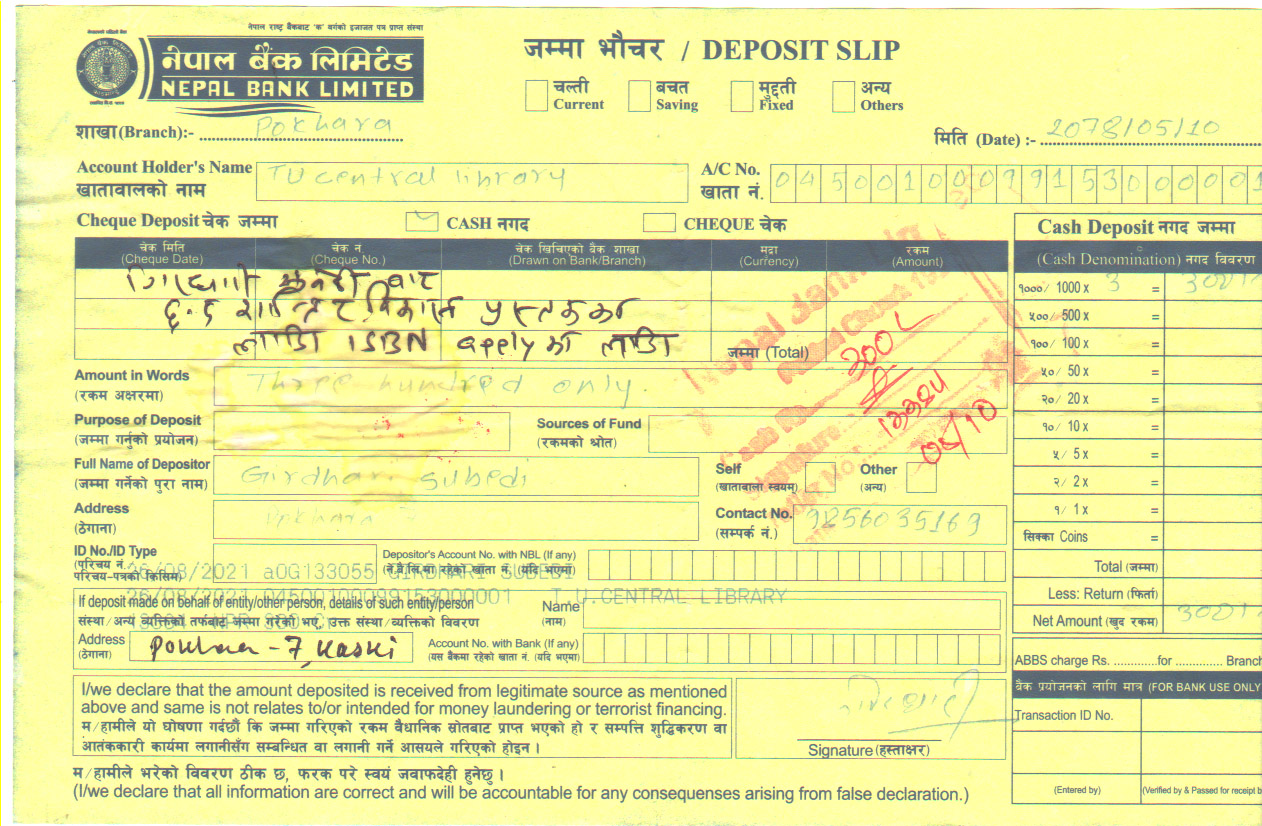 नेपाल राष्ट्र बैंकबाट 'क' वर्गको इजाजत पत्र प्राप्त संस्था
नेपाल बैंक लिमिटेड
NEPAL BANK LIMITED
जम्मा भौचर / DEPOSIT SLIP
चल्ती Current
बचत Saving
मुद्दती Fixed
अन्य Others
शाखा (Branch):- Pokhara
मिति (Date) :- 2078/05/10
Account Holder's Name TU central library
खातावालको नाम
A/C No. 04500100099153000001
खाता नं.
Cheque Deposit चेक जम्मा
CASH नगद
CHEQUE चेक
चेक मिति (Cheque Date)
चेक नं. (Cheque No.)
चेक खिचिएको बैंक शाखा (Drawn on Bank/Branch)
मुद्रा (Currency)
रकम (Amount)
बाट
पुस्तकका
लागि ISBN apply का लागि
जम्मा (Total)
300
13324
05/10
Amount in Words Three hundred only.
(रकम अक्षरमा)
Purpose of Deposit
(जम्मा गर्नुको प्रयोजन)
Sources of Fund
(रकमको श्रोत)
Full Name of Depositor Girdhari Subedi
(जम्मा गर्नेको पुरा नाम)
Self
(खातावाला स्वयम)
Other
(अन्य)
Address Pokhara 7
(ठेगाना)
Contact No. 9856035169
(सम्पर्क नं.)
ID No./ID Type
(परिचय नं.
परिचय-पत्रको किसिम)
Depositor's Account No. with NBL (If any)
ने.बै.लि.मा रहेको खाता नं. (यदि भएमा)
26/08/2021 a0G133055 GIRDHARI SUBEDI
26/08/2021 04500100099153000001 T.U.CENTRAL LIBRARY
If deposit made on behalf of entity/other person, details of such entity/person
संस्था/अन्य व्यक्तिको तर्फबाट जम्मा गरेको भए, उक्त संस्था/व्यक्तिको विवरण
Name
(नाम)
Address Pokhara - 7, Kaski
(ठेगाना)
Account No. with Bank (If any)
(यस बैंकमा रहेको खाता नं. (यदि भएमा)
I/we declare that the amount deposited is received from legitimate source as mentioned
above and same is not relates to/or intended for money laundering or terrorist financing.
म/हामीले यो घोषणा गर्दछौं कि जम्मा गरिएको रकम वैधानिक स्रोतबाट प्राप्त भएको हो र सम्पत्ति शुद्धिकरण वा
आतंककारी कार्यमा लगानीसँग सम्बन्धित वा लगानी गर्ने आसयले गरिएको होइन ।
Signature (हस्ताक्षर)
म/हामीले भरेको विवरण ठीक छ, फरक परे स्वयं जवाफदेही हुनेछु ।
(I/we declare that all information are correct and will be accountable for any consequences arising from false declaration.)
Cash Deposit नगद जम्मा
(Cash Denomination) नगद विवरण
१०००/ 1000 x 3 = 300/-
५००/ 500 x =
१००/ 100 x =
५०/ 50 x =
२०/ 20 x =
१०/ 10 x =
५/ 5x =
२/ 2x =
१/ 1x =
सिक्का Coins =
Total (जम्मा)
Less: Return (फिर्ता)
Net Amount (खुद रकम) 300/-
ABBS charge Rs. .............for ............. Branch
बैंक प्रयोजनको लागि मात्र (FOR BANK USE ONLY
Transaction ID No.
(Entered by)
(Verified by & Passed for receipt b